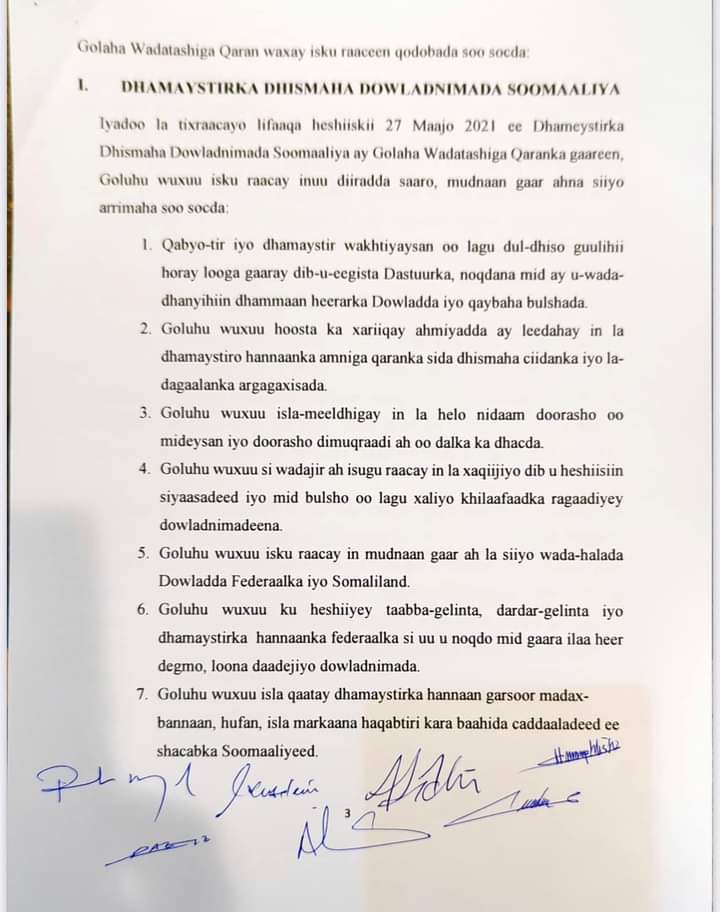 Golaha Wadatashiga Qaran waxay isku raaceen qodobada soo socda:
I. DHAMAYSTIRKA DHISMAHA DOWLADNIMADA SOOMAALIYA
Iyadoo la tixraacayo lifaaqa heshiiskii 27 Maajo 2021 ee Dhameystirka
Dhismaha Dowladnimada Soomaaliya ay Golaha Wadatashiga Qaranka gaareen,
Goluhu wuxuu isku raacay inuu diiradda saaro, mudnaan gaar ahna siiyo
arrimaha soo socda:
1. Qabyo-tir iyo dhamaystir wakhtiyaysan oo lagu dul-dhiso guulihii
horay looga gaaray dib-u-eegista Dastuurka, noqdana mid ay u-wada-
dhanyihiin dhammaan heerarka Dowladda iyo qaybaha bulshada.
2. Goluhu wuxuu hoosta ka xariiqay ahmiyadda ay leedahay in la
dhamaystiro hannaanka amniga qaranka sida dhismaha ciidanka iyo la-
dagaalanka argagaxisada.
3. Goluhu wuxuu isla-meeldhigay in la helo nidaam doorasho oo
mideysan iyo doorasho dimuqraadi ah oo dalka ka dhacda.
4. Goluhu wuxuu si wadajir ah isugu raacay in la xaqiijiyo dib u heshiisiin
siyaasadeed iyo mid bulsho oo lagu xaliyo khilaafaadka ragaadiyey
dowladnimadeena.
5. Goluhu wuxuu isku raacay in mudnaan gaar ah la siiyo wada-halada
Dowladda Federaalka iyo Somaliland.
6. Goluhu wuxuu ku heshiiyey taabba-gelinta, dardar-gelinta iyo
dhamaystirka hannaanka federaalka si uu u noqdo mid gaara ilaa heer
degmo, loona daadejiyo dowladnimada.
7. Goluhu wuxuu isla qaatay dhamaystirka hannaan garsoor madax-
bannaan, hufan, isla markaana haqabtiri kara baahida caddaaladeed ee
shacabka Soomaaliyeed.
3